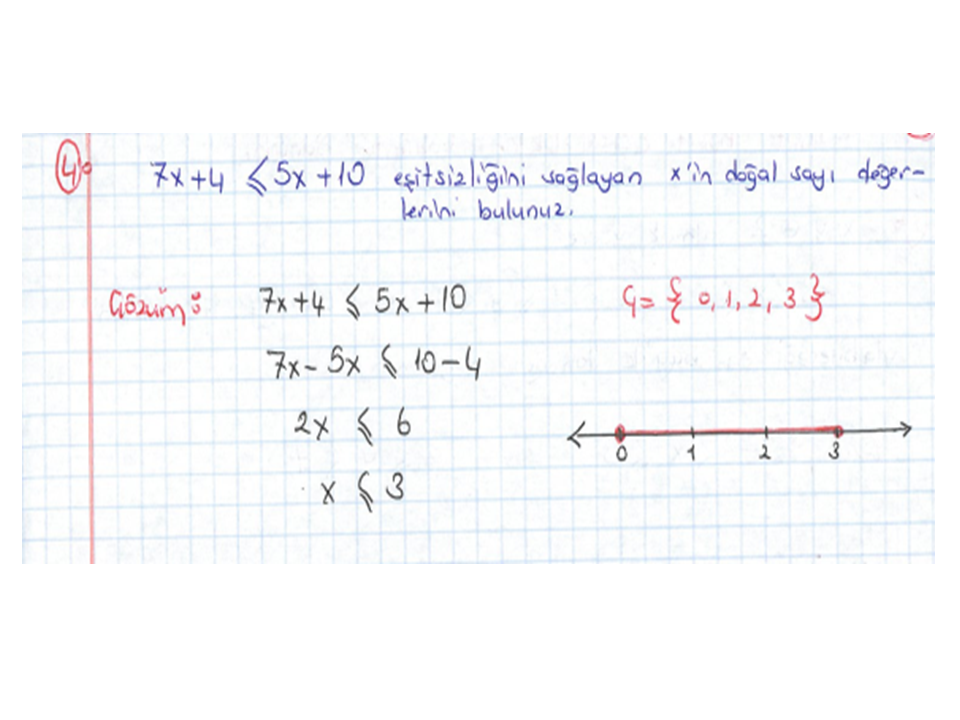 4. 7x+4 ⩽ 5x+10 eşitsizliğini sağlayan x'in doğal sayı değer-
lerini bulunuz.
Çözüm: 7x+4 ⩽ 5x+10 Ç= { 0, 1, 2, 3 }
7x- 5x ⩽ 10-4
2x ⩽ 6
0 1 2 3
x ⩽ 3